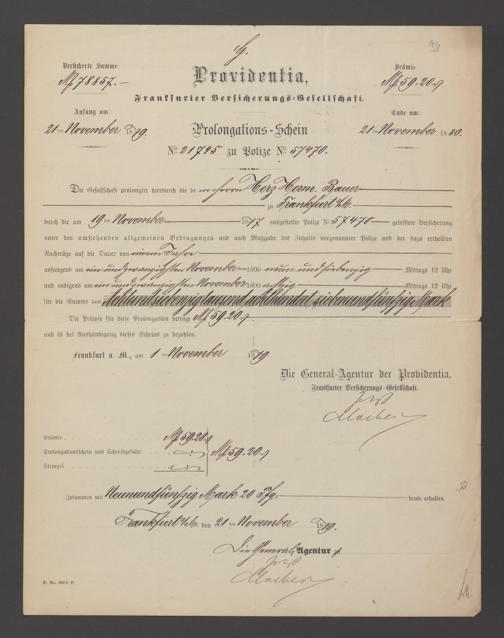 98
Versicherte Summe
M 78857.–
Anfang am:
21ten November 1879.
Providentia,
Frankfurter Versicherungs-Gesellschaft.
Prolongations-Schein
No. 21745 zu Polize No. 57470.
Prämie
M 59.20
Ende um:
21ten November 1880.
Die Gesellschaft prolongirt hierdurch die de m Herrn Herz Herm. Bauer
zu Frankfurt a/M.
durch die am 19ten November 1877 ausgestellte Polize No. 57470 geleistete Versicherung
unter den umstehenden allgemeinen Bedingungen und nach Maßgabe des Inhalts vorgenannter Polize und der dazu erhalten
Nachträge auf die Dauer von einem Jahre
anfangend am einundzwanzigsten November 1800 neun und siebenzig Mittags 12 Uhr
und endigend am einundzwanzigsten November 1800 achtzig Mittags 12 Uhr
für die Summe von Achtundsiebenzigtausend achthundert siebenundfünfzig Mark
Die Prämie für diese Prolongation beträgt M 59.20
und ist bei Aushändigung dieses Scheins zu bezahlen.
Frankfurt a. M., am 1 November 1879
Die General-Agentur der Providentia,
Frankfurter Versicherungs-Gesellschaft.
Prämie M 59.20
Prolongationsschein und Schreibgebühr
Stempel
M 59.20
Zusammen mit Neunundfünfzig Mark 20 Pfg. heute erhalten.
Frankfurt a/M. den 21ten November 1879.
Die General-Agentur